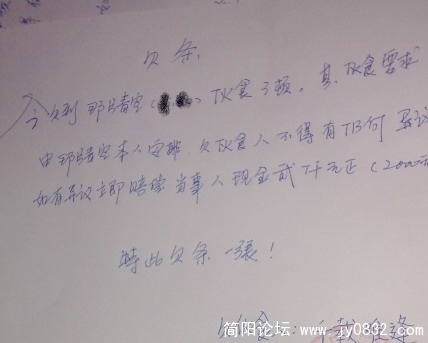 欠条
今欠到 邓晴空() 饮食3顿。其饮食要求
由邓晴空本人安排,欠饮食人不得有任何异议
如有异议立即赔偿当事人现金贰仟元正(2000元
特此欠条一张!
欠食:
简阳论坛:www.jy0832.com